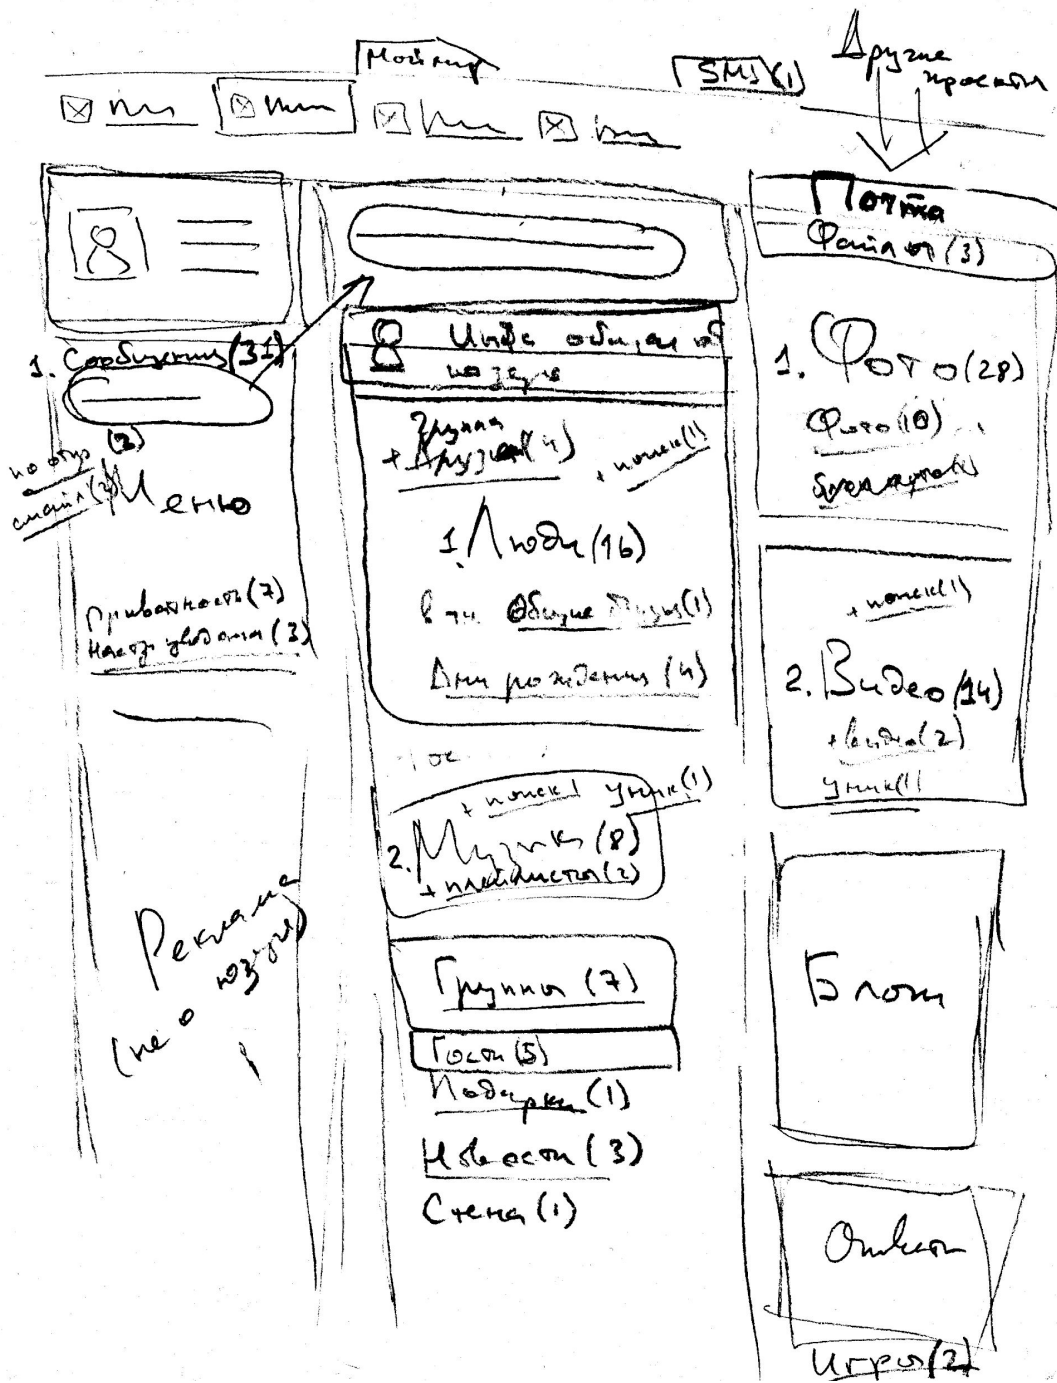 Мой мир
SMS(1)
Другие
проекты
Почта
Файлы (3)
1. Сообщения (31)
(2)
Меню
Приватность (7)
(3)
Реклама
(не о
юзере)
Инфа
по
Группа
+ Друзей (4)
+ поиск (1)
1. Люди (16)
в т.ч. Общие друзья (1)
Дни рождения (4)
+ поиск 1 Уник (1)
2. Музыка (8)
+ плейлисты (2)
Группы (7)
Гости (5)
Подарки (1)
Новости (3)
Стена (1)
1. Фото (28)
Фото (10)
+ поиск (1)
2. Видео (14)
+ видео (2)
Уник (1)
Блоги
Ответы
Игры (2)